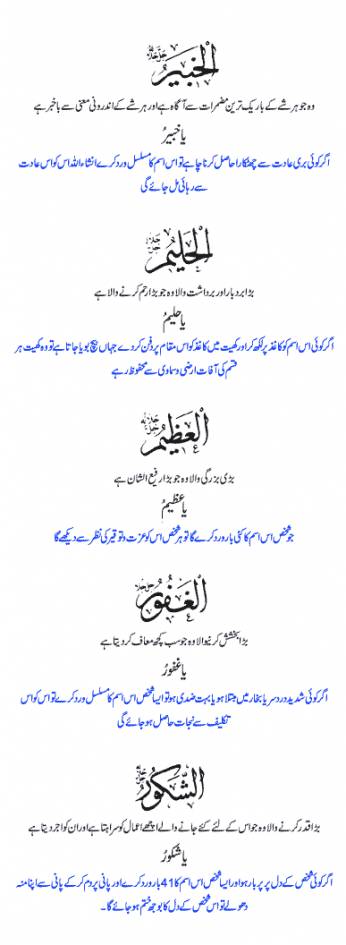 الخبیرُ جل جلالہ
وہ جو ہر شے کے باریک ترین مضمرات سے آگاہ ہے اور ہر شے کے اندرونی معنی سے باخبر ہے
یا خبیرُ
اگر کوئی بری عادت سے چھٹکارا حاصل کرنا چاہے تو اس اسم کا مسلسل ورد کرے انشاء اللہ اس کو اس عادت
سے رہائی مل جائے گی
الحلیمُ جل جلالہ
بڑا بردبار اور برداشت والا وہ جو بڑا رحم کرنے والا ہے
یا حلیمُ
اگر کوئی اس اسم کو کاغذ پر لکھ کر اور کھیت میں کاغذ کو اس مقام پر دفن کر دے جہاں بیج بویا جاتا ہے تو وہ کھیت ہر
قسم کی آفات ارضی و سماوی سے محفوظ رہے
العظیمُ جل جلالہ
بڑی بزرگی والا وہ جو بڑا رفیع الشان ہے
یا عظیمُ
جو شخص اس اسم کا کئی بار ورد کرے گا تو ہر شخص اس کو عزت و توقیر کی نظر سے دیکھے گا
الغفورُ جل جلالہ
بڑا بخشش کرنیوالا وہ جو سب کچھ معاف کر دیتا ہے
یا غفورُ
اگر کوئی شدید درد سر یا بخار میں مبتلا ہو یا بہت ضدی ہو تو ایسا شخص اس اسم کا مسلسل ورد کرے تو اس کو اس
تکلیف سے نجات حاصل ہو جائے گی
الشکورُ جل جلالہ
بڑا قدر کرنے والا وہ جو اس کے لئے کئے جانے والے اچھے اعمال کو سراہتا ہے اور ان کو اجر دیتا ہے
یا شکورُ
اگر کوئی شخص کے دل پر پر بار ہو اور ایسا شخص اس اسم کا 41 بار ورد کرے اور پانی پر دم کر کے پانی سے اپنا منہ
دھولے تو اس شخص کے دل کا بوجھ ختم ہو جائے گا۔